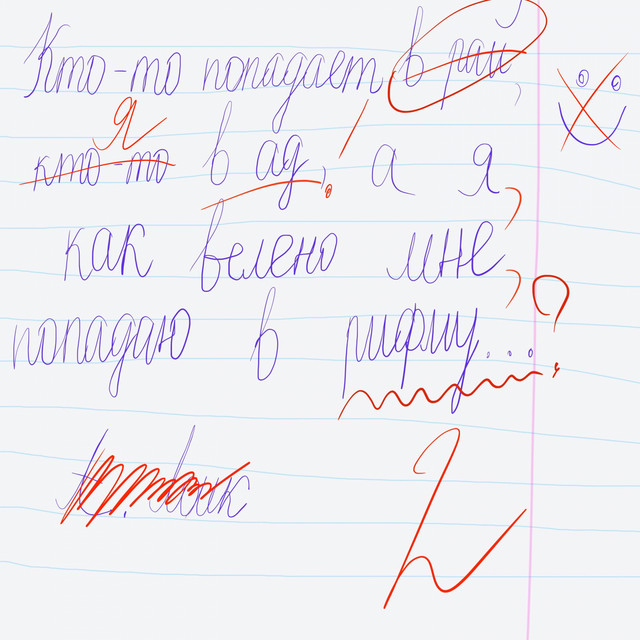 Кто-то попадает в рай,
Я
кто-то в ад, а я,
как велено мне,
попадаю в рифму...
2